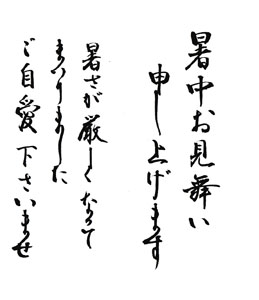 暑中お見舞い
申し上げます
暑さが厳しくなって
まいりました
ご自愛下さいませ